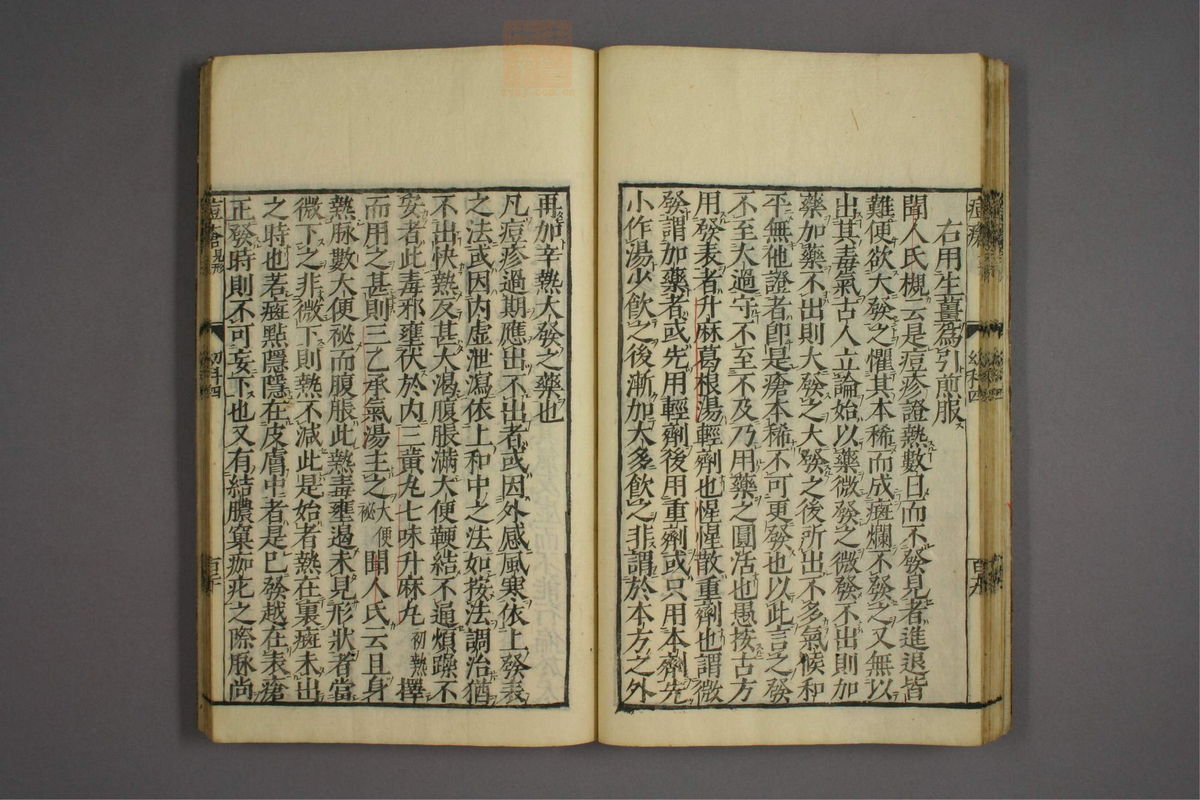 右用生薑爲引煎服
聞人氏槻云是痘疹證熱數日而不發見者進退皆
難便欲大發之懼其本稀而成斑爛不發之又無以
出其毒氣古人立論始以藥微發之微發不出則加
藥加藥不出則大發之大發之後所出不多氣候和
平無他證者卽是瘡本稀不可更發也以此言之發
不至太過守不至不及乃用藥之圓活也愚按古方
用發表者升麻葛根湯輕劑也惺惺散重劑也謂微
發謂加藥者或先用輕劑後用重劑或只用本劑先
小作湯少飮之後漸加大多飮之非謂於本方之外
再加辛熱大發之藥也
凡痘疹過期應出不出者或因外感風寒依上發表
之法或因内虛泄瀉依上和中之法如按法調治猶
不出快熱反甚大渴腹脹滿大便鞕結不通煩躁不
安者此毒邪壅伏於内三黃丸七味升麻丸初熱擇
而用之甚則三乙承氣湯主之大便祕聞人氏云且身
熱脉數大便祕而腹脹此熱毒壅遏未見形狀者當
微下之非微下則熱不減此是始者熱在裏斑未出
之時也若斑㸃隱隱在皮膚中者是已發越在表瘡
正發時則不可妄下也又有結膿窠痂疕之際脉尚
痘瘡
見形
幼科四